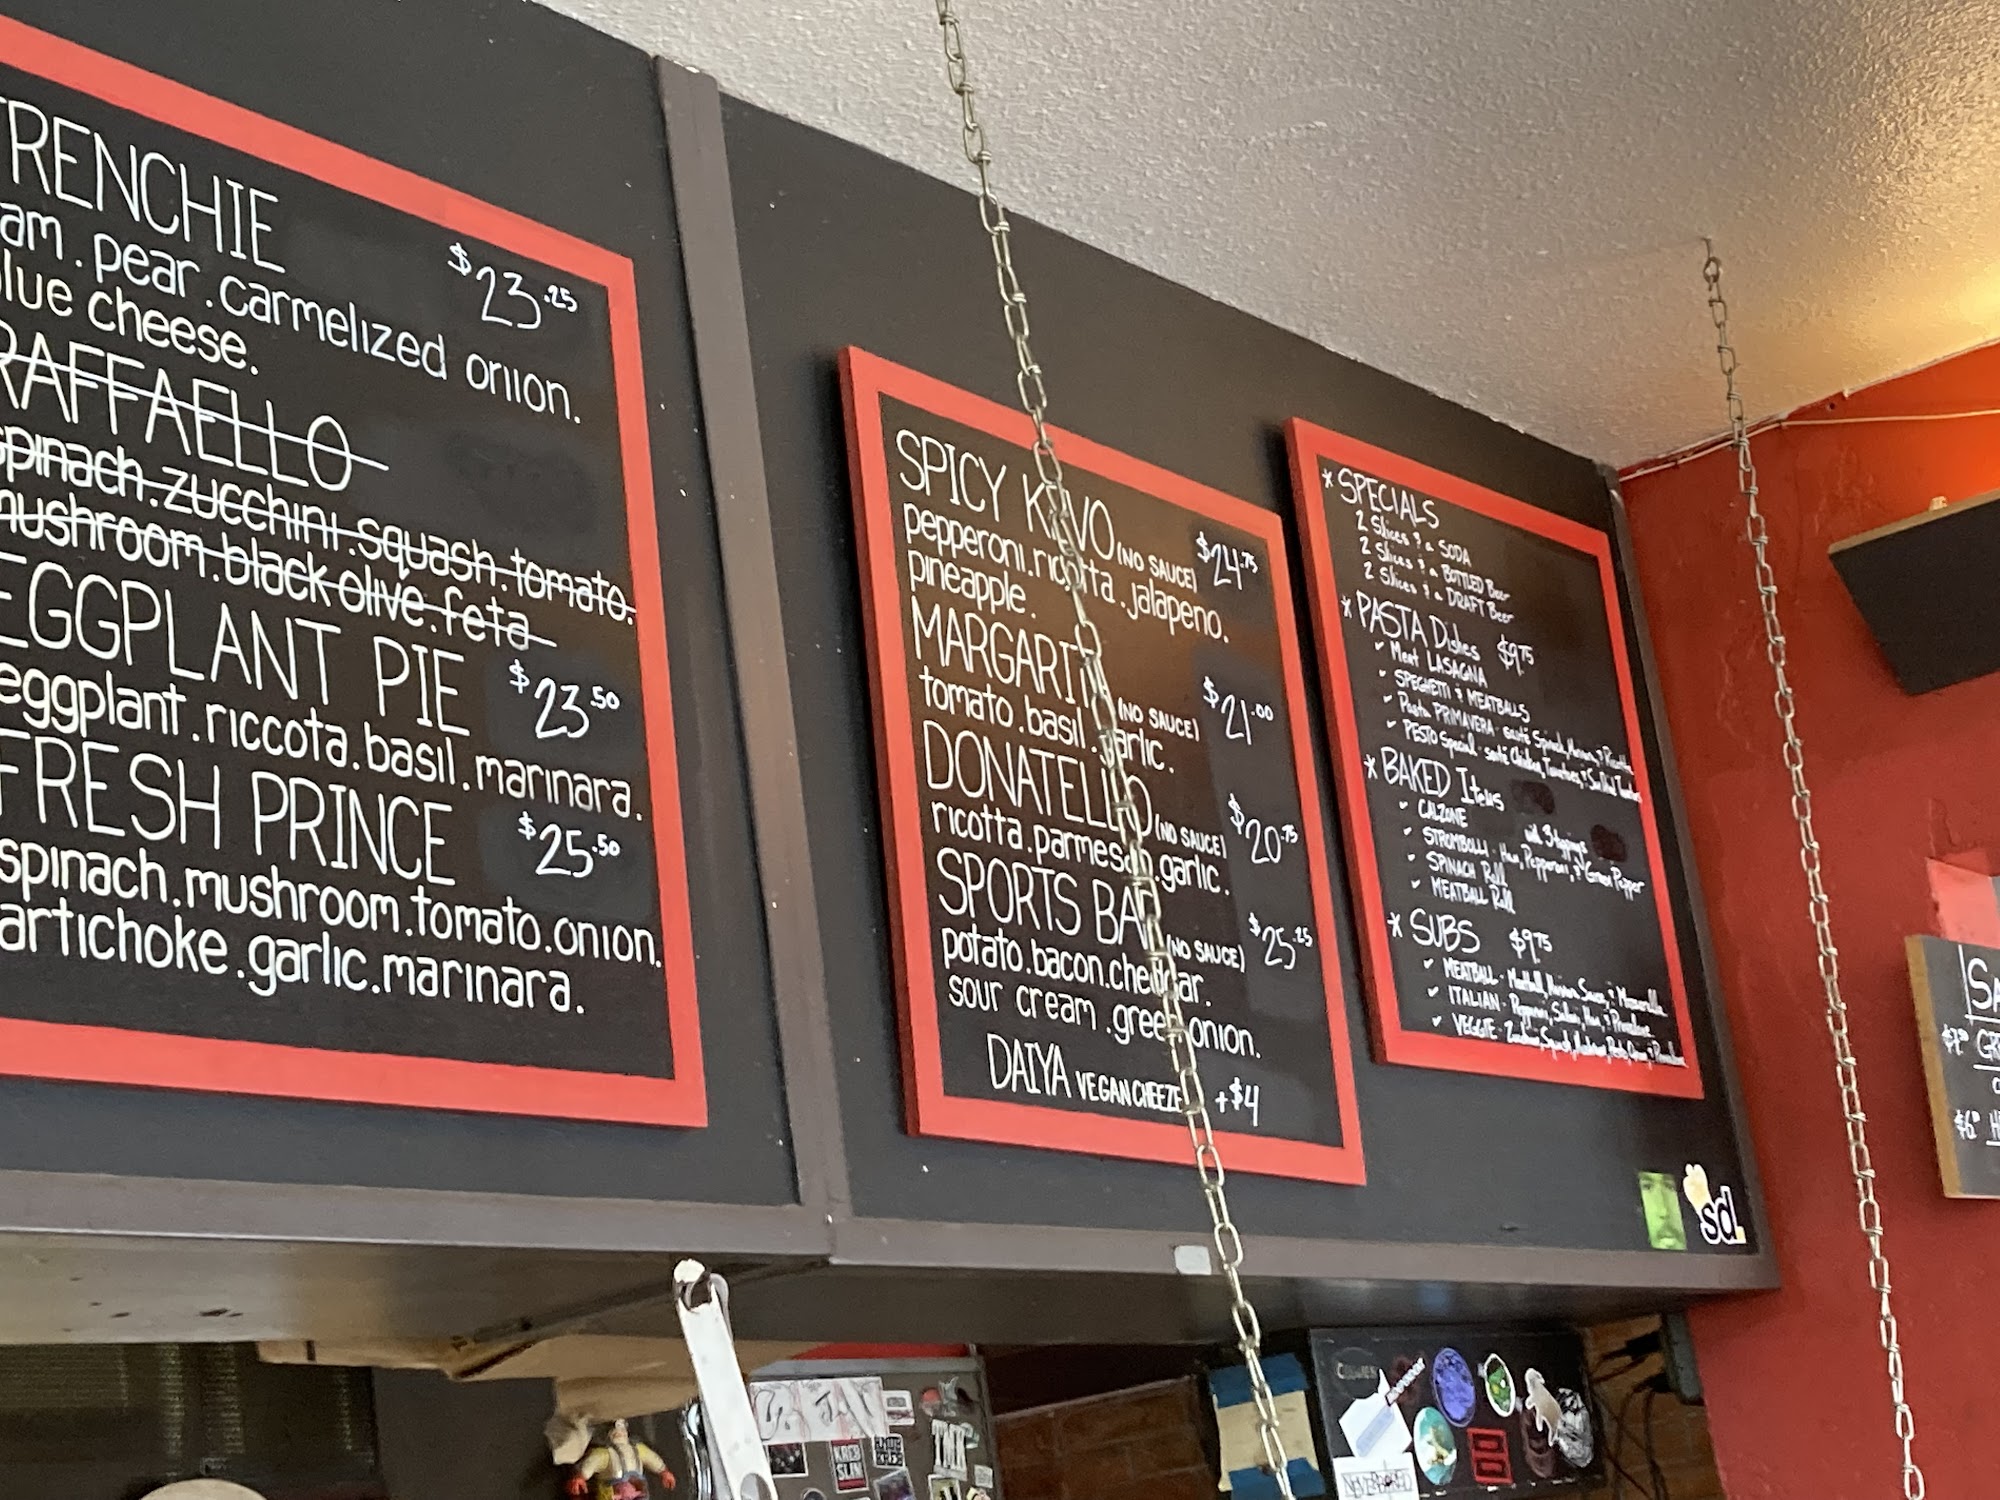 FRENCHIE $23.25
am.pear.carmelized onion.
blue cheese.
RAFFAELLO
spinach.zucchini.squash.tomato.
mushroom.black olive.feta
EGGPLANT PIE $23.50
eggplant.riccota.basil.marinara.
FRESH PRINCE $25.50
spinach.mushroom.tomato.onion.
artichoke.garlic.marinara.
SPICY (NO SAUCE) $24.75
pepperoni.ricotta.jalapeno.
pineapple.
MARGARITA (NO SAUCE) $21.00
tomato.basil.garlic.
DONATELLO (NO SAUCE) $20.75
ricotta.parmesan.garlic.
SPORTS BAR (NO SAUCE) $25.25
potato.bacon.cheddar.
sour cream.green onion.
DAIYA VEGAN CHEEZE +$4
* SPECIALS
2 Slices & a SODA
2 Slices & a BOTTLED Beer
2 Slices & a DRAFT Beer
* PASTA Dishes $9.75
✓ Meat LASAGNA
✓ SPEGHETTI & MEATBALLS
✓ Pasta PRIMAVERA - sauté Spinach, & Ricotta
✓ PESTO Special - sauté Chicken, Tomatoes, &
* BAKED Items
✓ CALZONE w/ 3 toppings
✓ STROMBOLLI - Ham, Pepperoni, & Green Pepper
✓ SPINACH Roll
✓ MEATBALL Roll
* SUBS $9.75
✓ MEATBALL - Meatball, Marinara Sauce, & Mozzarella
✓ ITALIAN - Pepperoni, Salami, Ham & Provolone
✓ VEGGIE - Zucchini, Squash,
sd
SA
GR
$6
KREB
SLIN
TMK
NEVERBORED